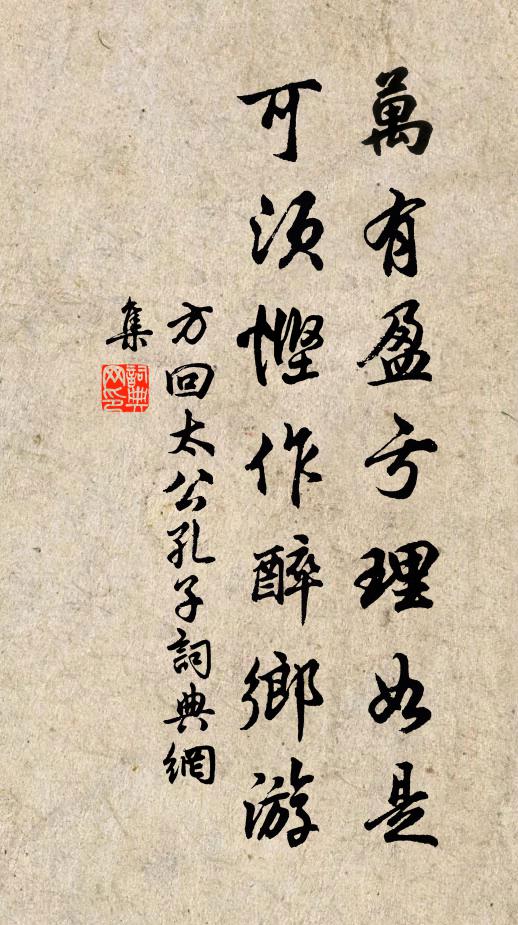 萬有盈亏理如是
可須慳作醉鄉游
方回太公孔子詞典網
集
詞典網印